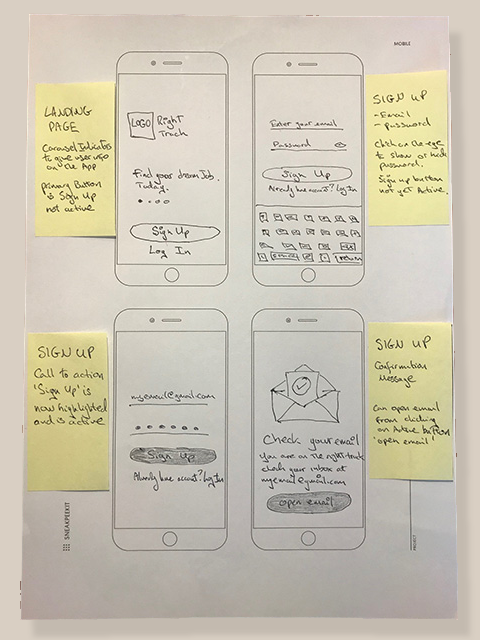 MOBILE
LANDING
PAGE
Carousel Indicators
to give user info
on the App
primary Button
is Sign Up
not active
LOGO
Right
Track
Find your dream Job.
Today.
Sign Up
Log In
Enter your email
Password
Sign Up
Already have account? Log In
return
SIGN UP
- Email
- Password
Click on the eye
to show or hide
password.
Sign up button
not yet Active.
SIGN UP
Call to action
'Sign Up' is
now highlighted
and is active
myemail@gmail.com
Sign Up
Already have account? Log In
Check your email
You are on the right track
check your inbox at
myemail@gmail.com
Open email
SIGN UP
Confirmation
Message
Can open email
from clicking
on Active button
'open email'
SNEAKPEEKIT
PROJECT